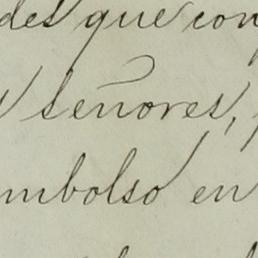 des que con
señores,
mbolso en